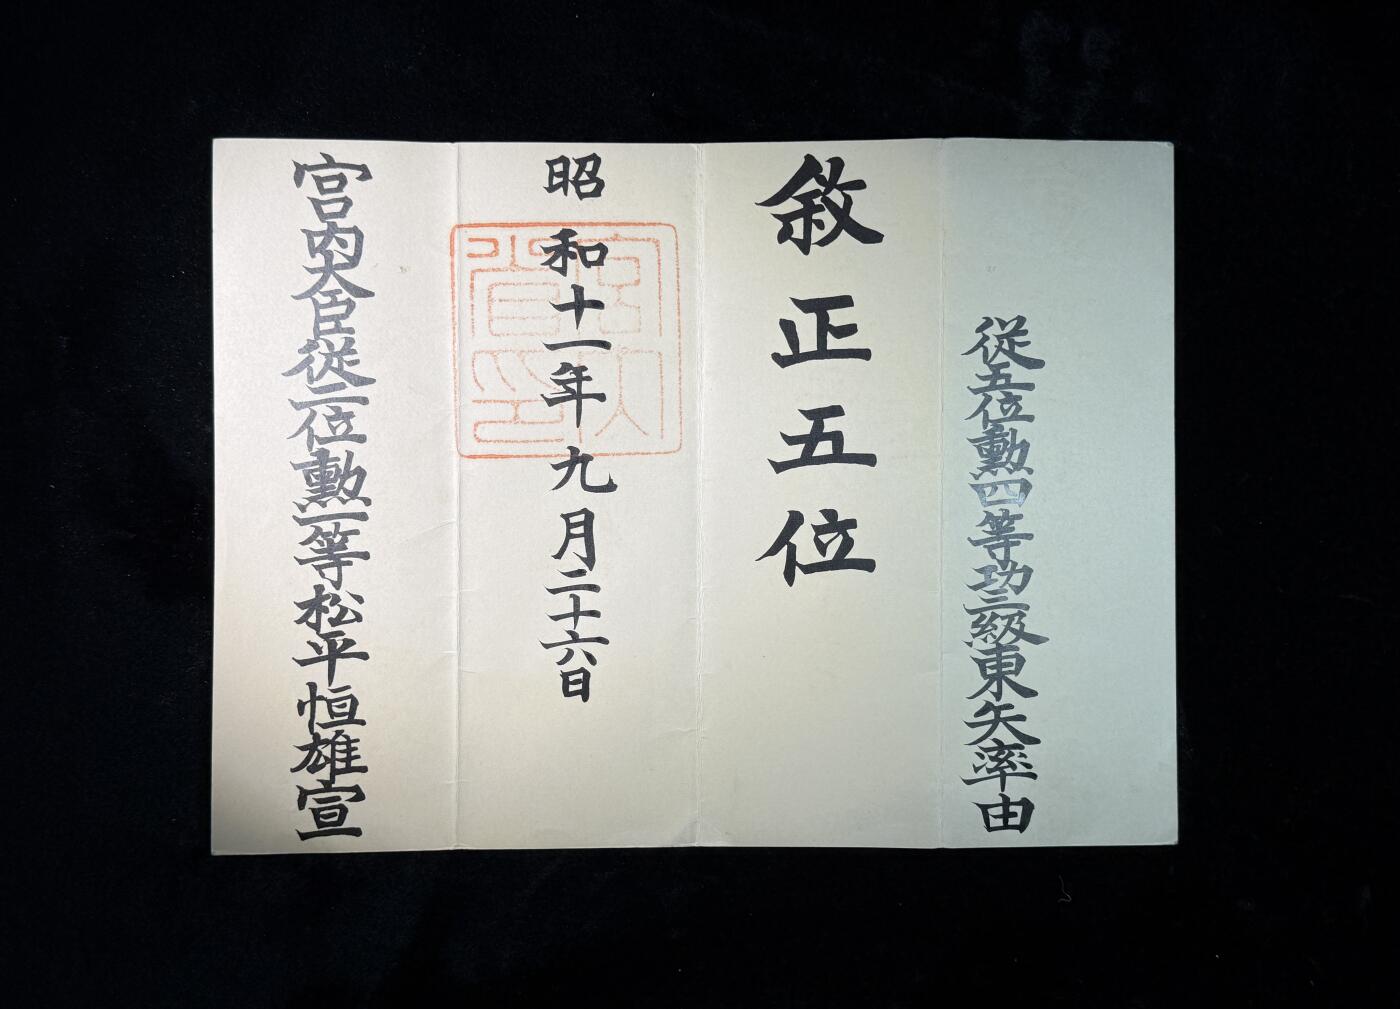 従五位勲四等功三級東矢率由
敘正五位
昭和十一年九月二十六日
宮内省印
宮内大臣従二位勲一等松平恒雄宣